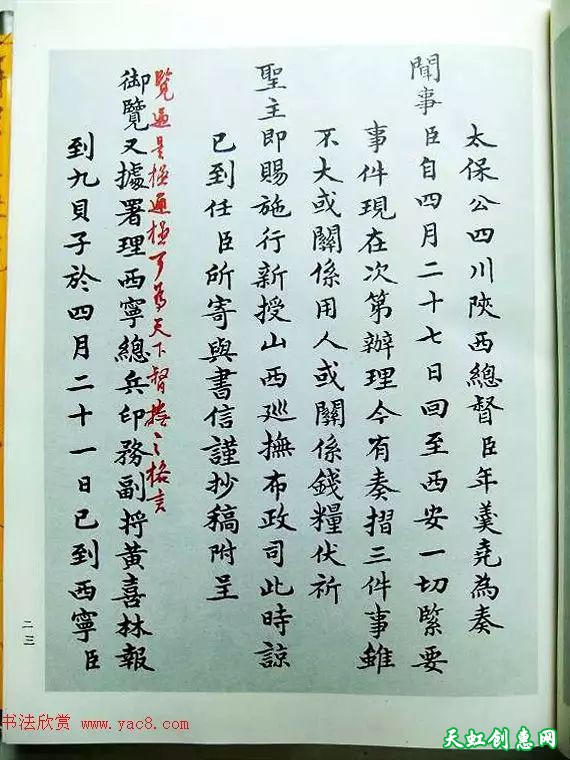 太保公四川陝西總督臣年羹堯為奏
聞事臣自四月二十七日回至西安一切緊要
事件現在次第辦理今有奏摺三件事雖
不大或關係用人或關係錢糧伏祈
聖主即賜施行新授山西巡撫布政司此時諒
已到任臣所寄與書信謹抄稿附呈
覽過是極通極了為天下督撫之格言
御覽又據署理西寧總兵印務副將黃喜林報
到九貝子於四月二十一日已到西寧臣
二三
书法欣赏 www.yac8.com
天虹创惠网